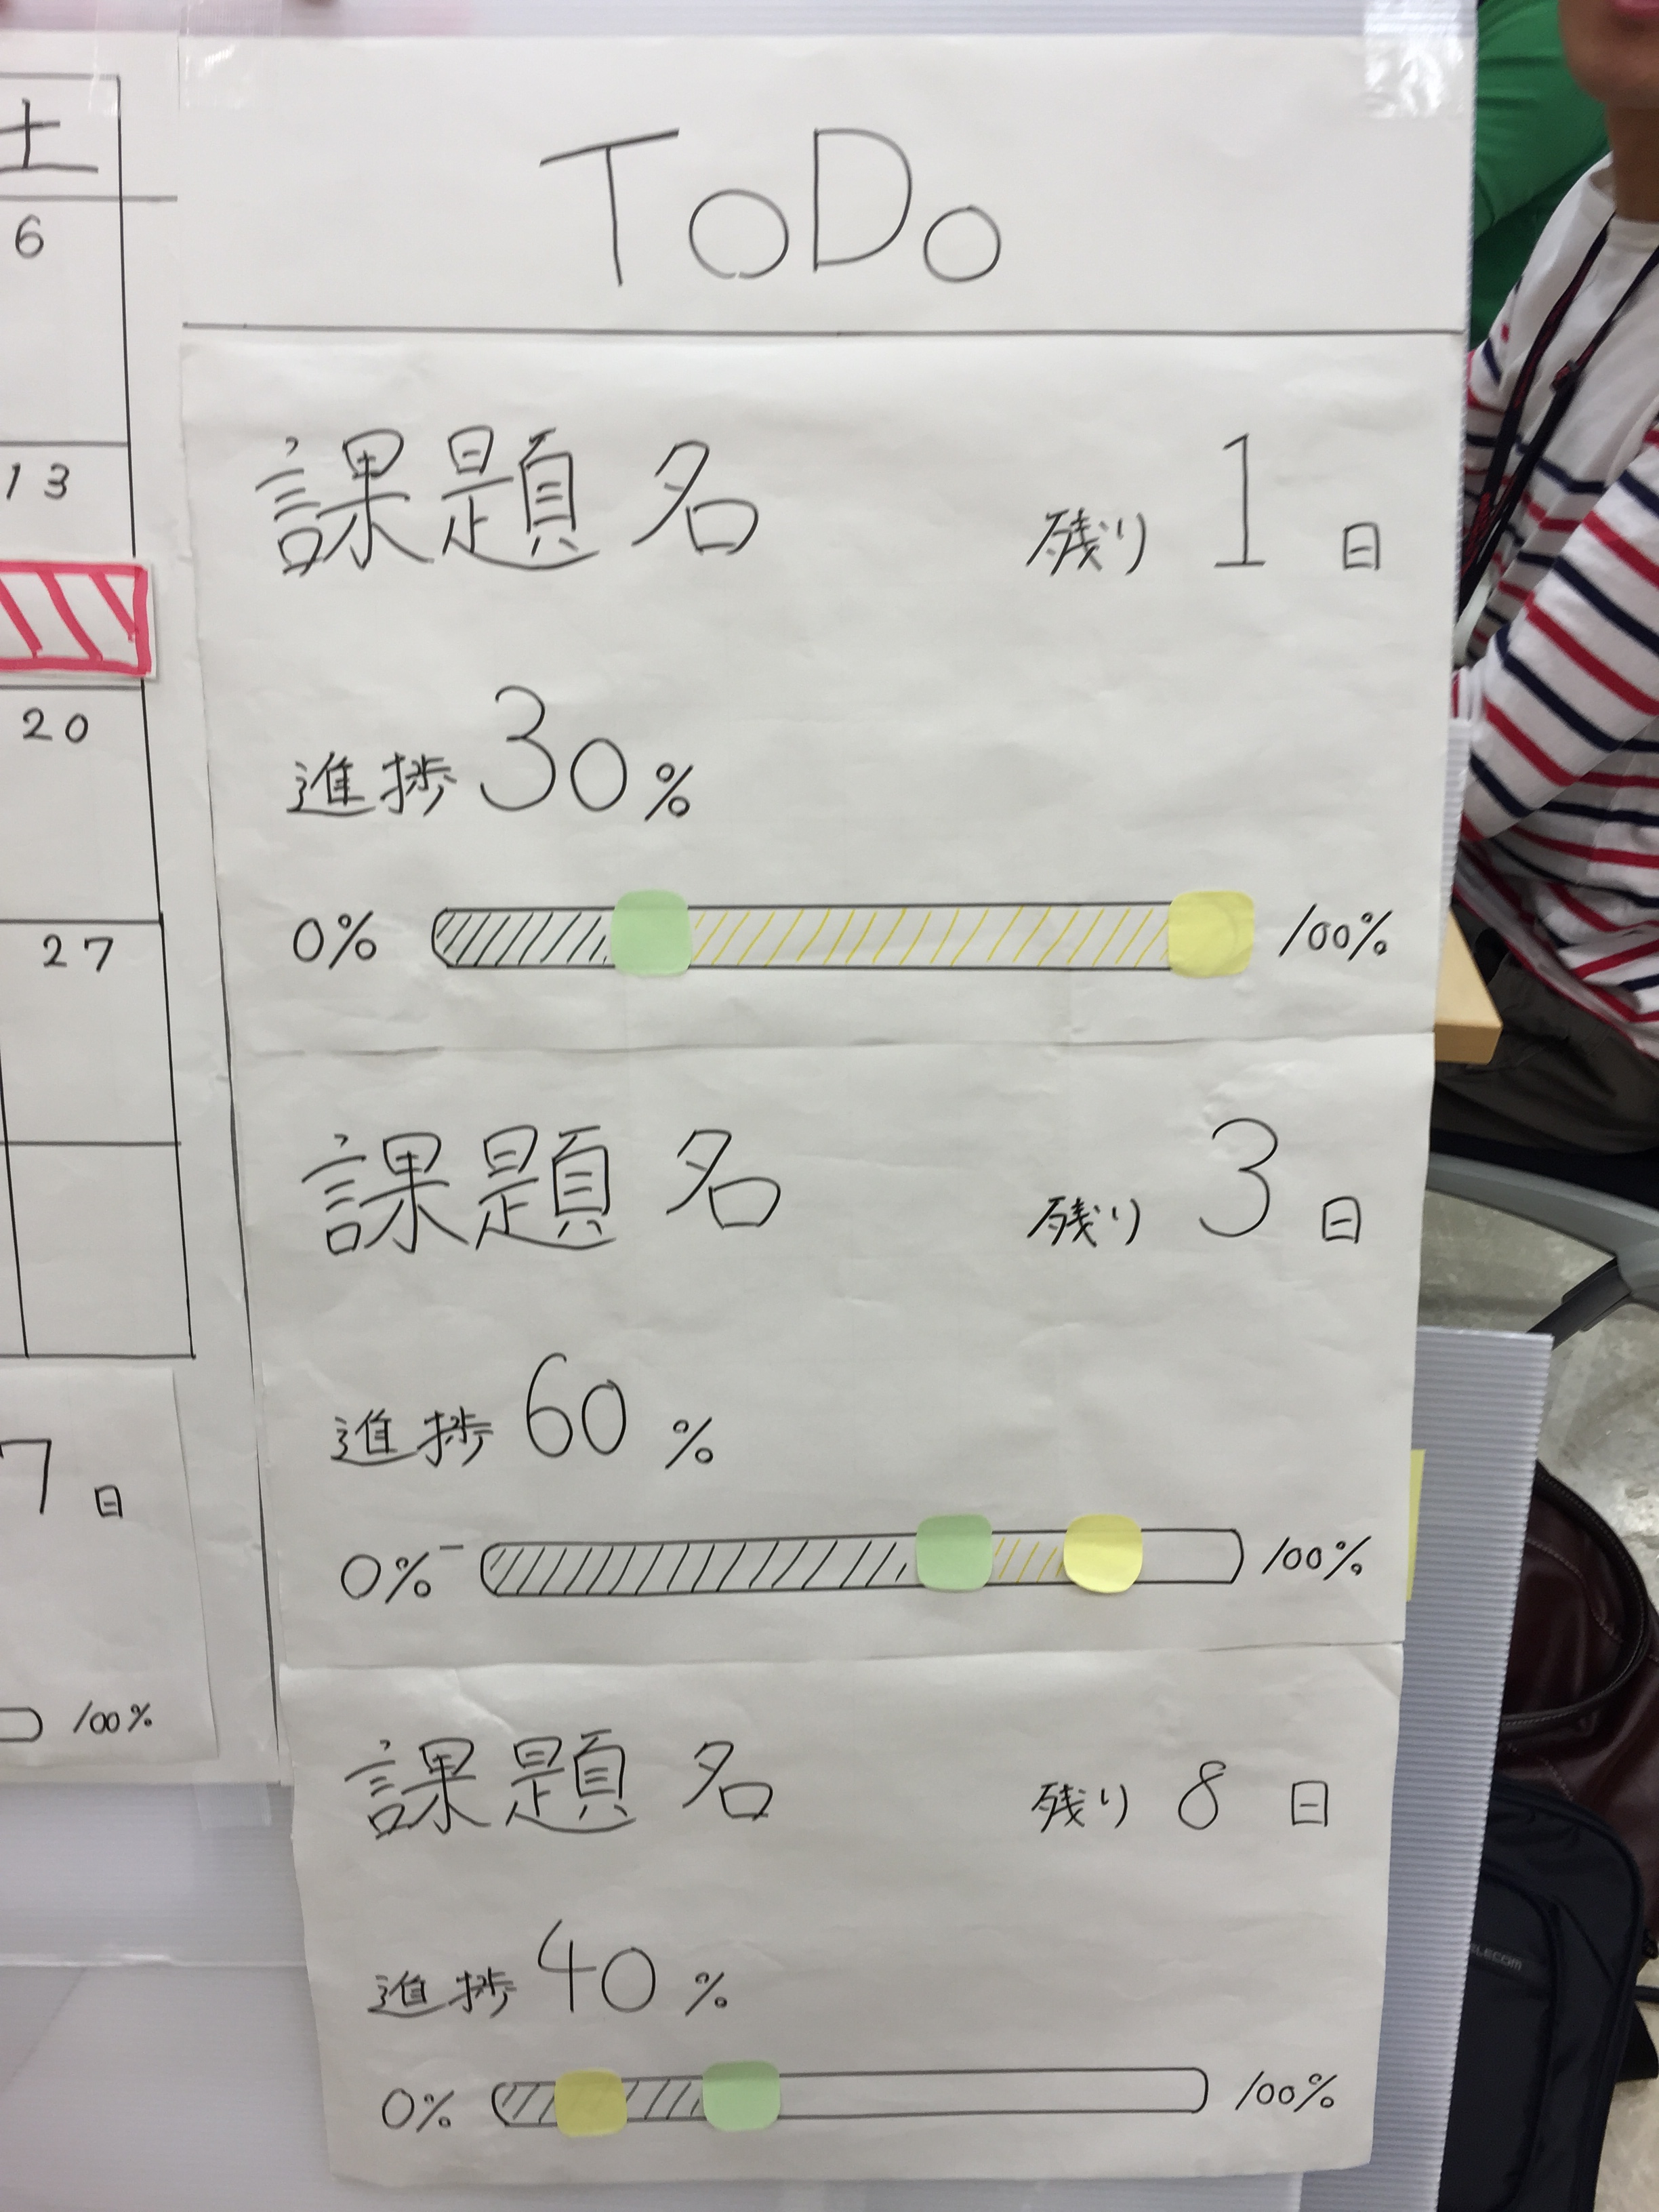 土
6
13
20
27
7日
100%
ToDo
課題名 残り 1 日
進捗 30%
0% 100%
課題名 残り 3 日
進捗 60%
0% 100%
課題名 残り 8 日
進捗 40%
0% 100%
ELECOM